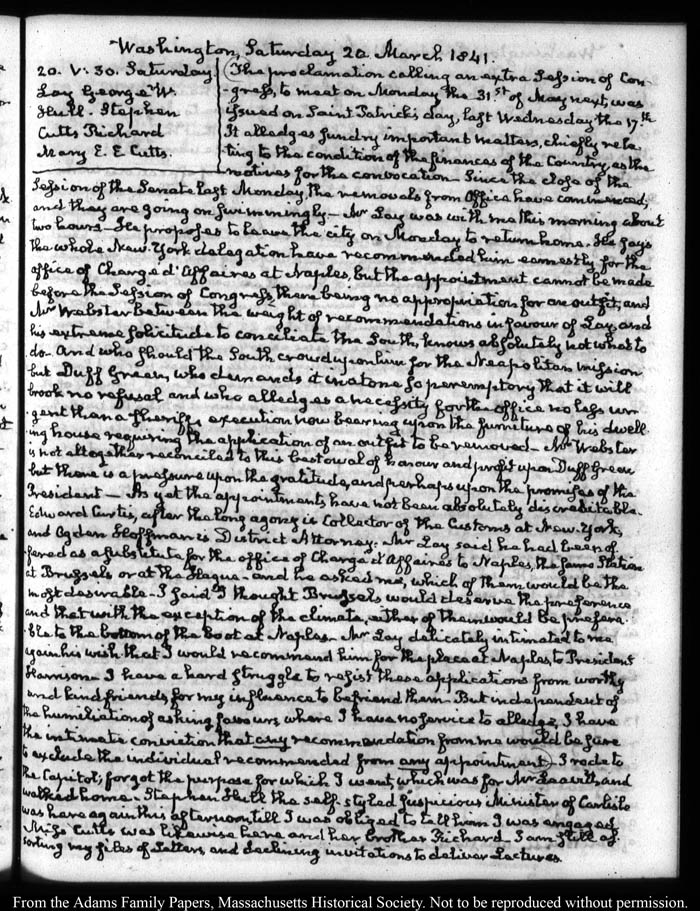 Washington, Saturday 20. March 1841.
20. V: 30. Saturday
Lay George W.
Hull. Stephen
Cutts Richard
Mary E. E Cutts.
The proclamation calling an extra Session of Con-
-gress, to meet on Monday the 31st of May next, was
issued on Saint Patrick's day, last Wednesday the 17th
It alledges sundry important matters, chiefly rela-
ting to the condition of the finances of the Country, as the
motives for the convocation - Since the close of the
Session of the Senate last Monday, the removals from Office have commenced,
and they are going on swimmingly - Mr Lay was with me this morning about
two hours - He proposes to leave the city on Monday to return home. He says
the whole New-York delegation have recommended him earnestly for the
office of Chargé d'Affaires at Naples, but the appointment cannot be made
before the Session of Congress, there being no appropriation for an outfit, and
Mr Webster between the weight of recommendations in favour of Lay, and
his extreme solicitude to conciliate the South, knows absolutely not what to
do - And who should the South crowd upon him for the Neapolitan mission
but Duff Green, who demands it in a tone so peremptory that it will
brook no refusal and who alledges a necessity for the office no less ur-
gent than a Sheriff's execution now bearing upon the furniture of his dwell-
-ing house requiring the application of an outfit to be removed - Mr Webster
is not altogether reconciled to this bestowal of honour and profit upon Duff Green
but there is a pressure upon the gratitude, and perhaps upon the promises of the
President - As yet the appointments have not been absolutely discreditable.
Edward Curtis, after the long agony is Collector of the Customs at New-York,
and Ogden Hoffman is District Attorney. Mr Lay said he had been of-
-fered as a substitute for the office of Chargé d'Affaires to Naples, the same Station
at Brussels or at the Hague - and he asked me, which of them would be the
most desirable - I said I thought Brussels would deserve the preference
and that with the exception of the climate, either of them would be prefera-
-ble to the bottom of the boot at Naples - Mr Lay delicately intimated to me
again his wish that I would recommend him for the place at Naples, to President
Harrison - I have a hard struggle to resist these applications from worthy
and kind friends, for my influence to befriend them - But independent of
the humiliation of asking favours, where I have no service to alledge, I have
the intimate conviction that any recommendation from me would be sure
to exclude the individual recommended from any appointment) I rode to
the Capitol; forgot the purpose for which I went, which was for Mr Leavitt, and
walked home - Stephen Hull the self-styled Minister of Carlisle
was here again this afternoon till I was obliged to tell him I was engaged
Miss Cutts was likewise here and her brother Richard - I am still as-
sorting my files of Letters, and declining invitations to deliver Lectures.
From the Adams Family Papers, Massachusetts Historical Society. Not to be reproduced without permission.